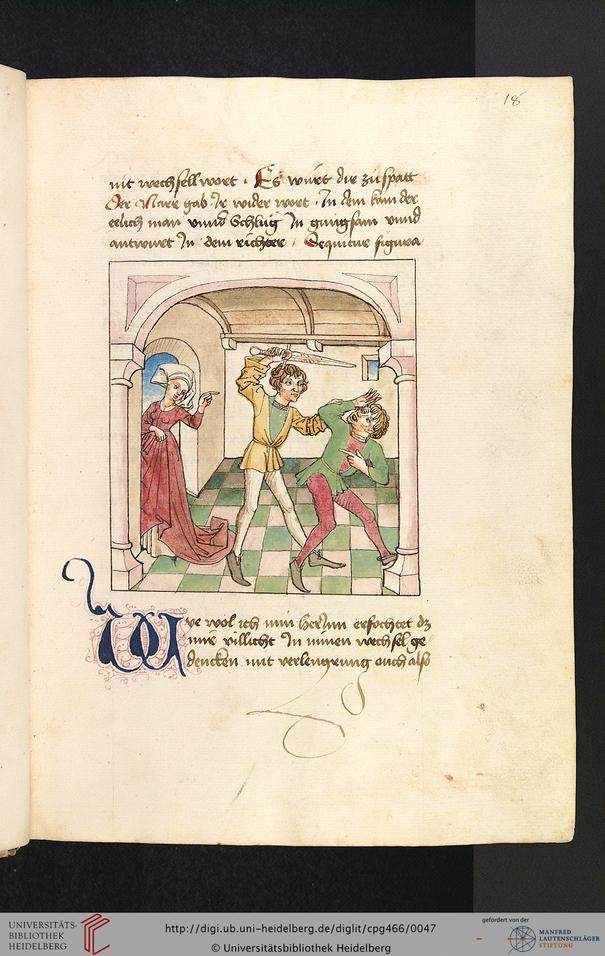 18
nit wechssell wort . Es wúrt dir zú spatt
Der Narr gab Ir wider wort . In dem kam der
eelich man vnnd Schlúg In gnúgsam vnnd
antwúrt In dem richter . Sequitur figura
Wye wol ich min herrnn erfochtet dz
mir villicht In minen wechsel ge
dencken mit verlengrung ouch also
UNIVERSITÄTS-
BIBLIOTHEK
HEIDELBERG
http://digi.ub.uni-heidelberg.de/diglit/cpg466/0047
© Universitätsbibliothek Heidelberg
gefördert von der
MANFRED
LAUTENSCHLÄGER
STIFTUNG